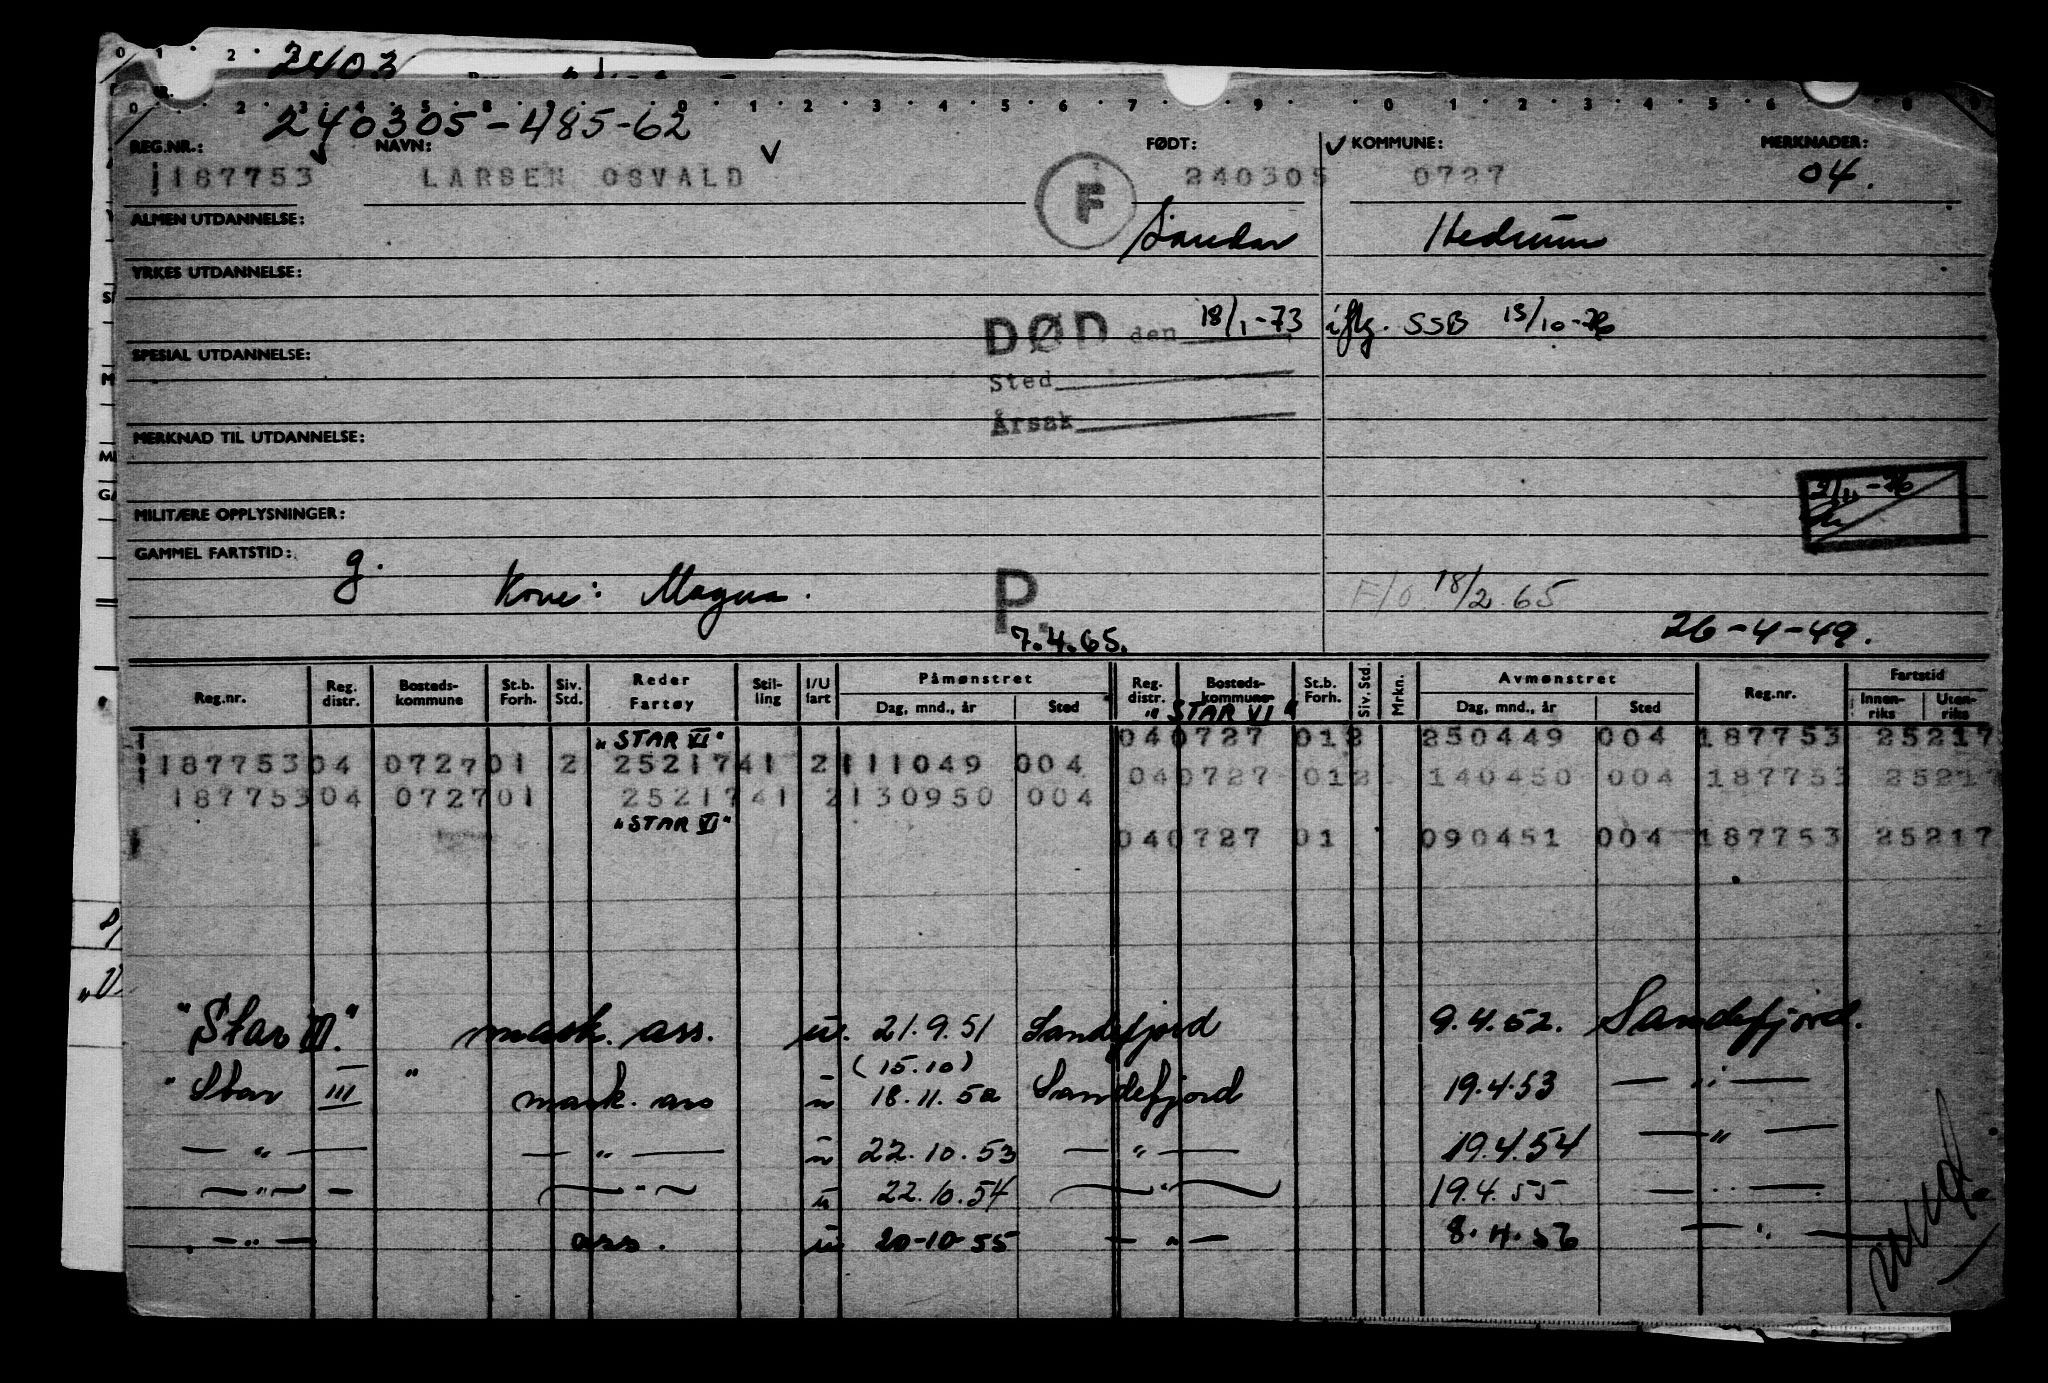 2403
240305-485-62
REG.NR.: NAVN: FØDT: KOMMUNE: MERKNADER:
187753 LARSEN OSVALD F 240305 0727 04.
ALMEN UTDANNELSE: Sandar Hedrum
YRKES UTDANNELSE:
DØD den 18/1-73 iflg. SSB 13/10-76
SPESIAL UTDANNELSE:
Sted
Årsak
MERKNAD TIL UTDANNELSE:
MILITÆRE OPPLYSNINGER:
GAMMEL FARTSTID: g.
Kone: Magna. P. 18/2.65
7.4.65. 26-4-49.
Reg.nr. Reg. distr. Bosteds-kommune St.b. Forh. Siv. Std. Reder Fartøy Stil-ling I/U fart Påmønstret Dag, mnd., år Sted Reg. distr. Bosteds-kommune St.b. Forh. Siv. Std. Mrkn. Avmønstret Dag, mnd., år Sted Reg.nr. Fartstid Innen-riks Uten-riks
"STAR VI"
"STAR VI" 040727 012 250449 004 187753 25217
187753 04 0727 01 2 2521741 2 111049 004 040727 012 140450 004 187753 25217
187753 04 0727 01 2521741 2 130950 004
"STAR VI"
040727 01 090451 004 187753 25217
"Star III." mask. ass. u. 21.9.51 Sandefjord 9.4.52. Sandefjord.
(15.10)
"Star III " mask. ass u 18.11.52 Sandefjord 19.4.53 — " —
— " — — " — u 22.10.53 — " — 19.4.54 — " —
— " — — " — u 22.10.54 — " — 19.4.55 — " —
— " — ass. u 20-10-55 — " — 8.4.56 — " —